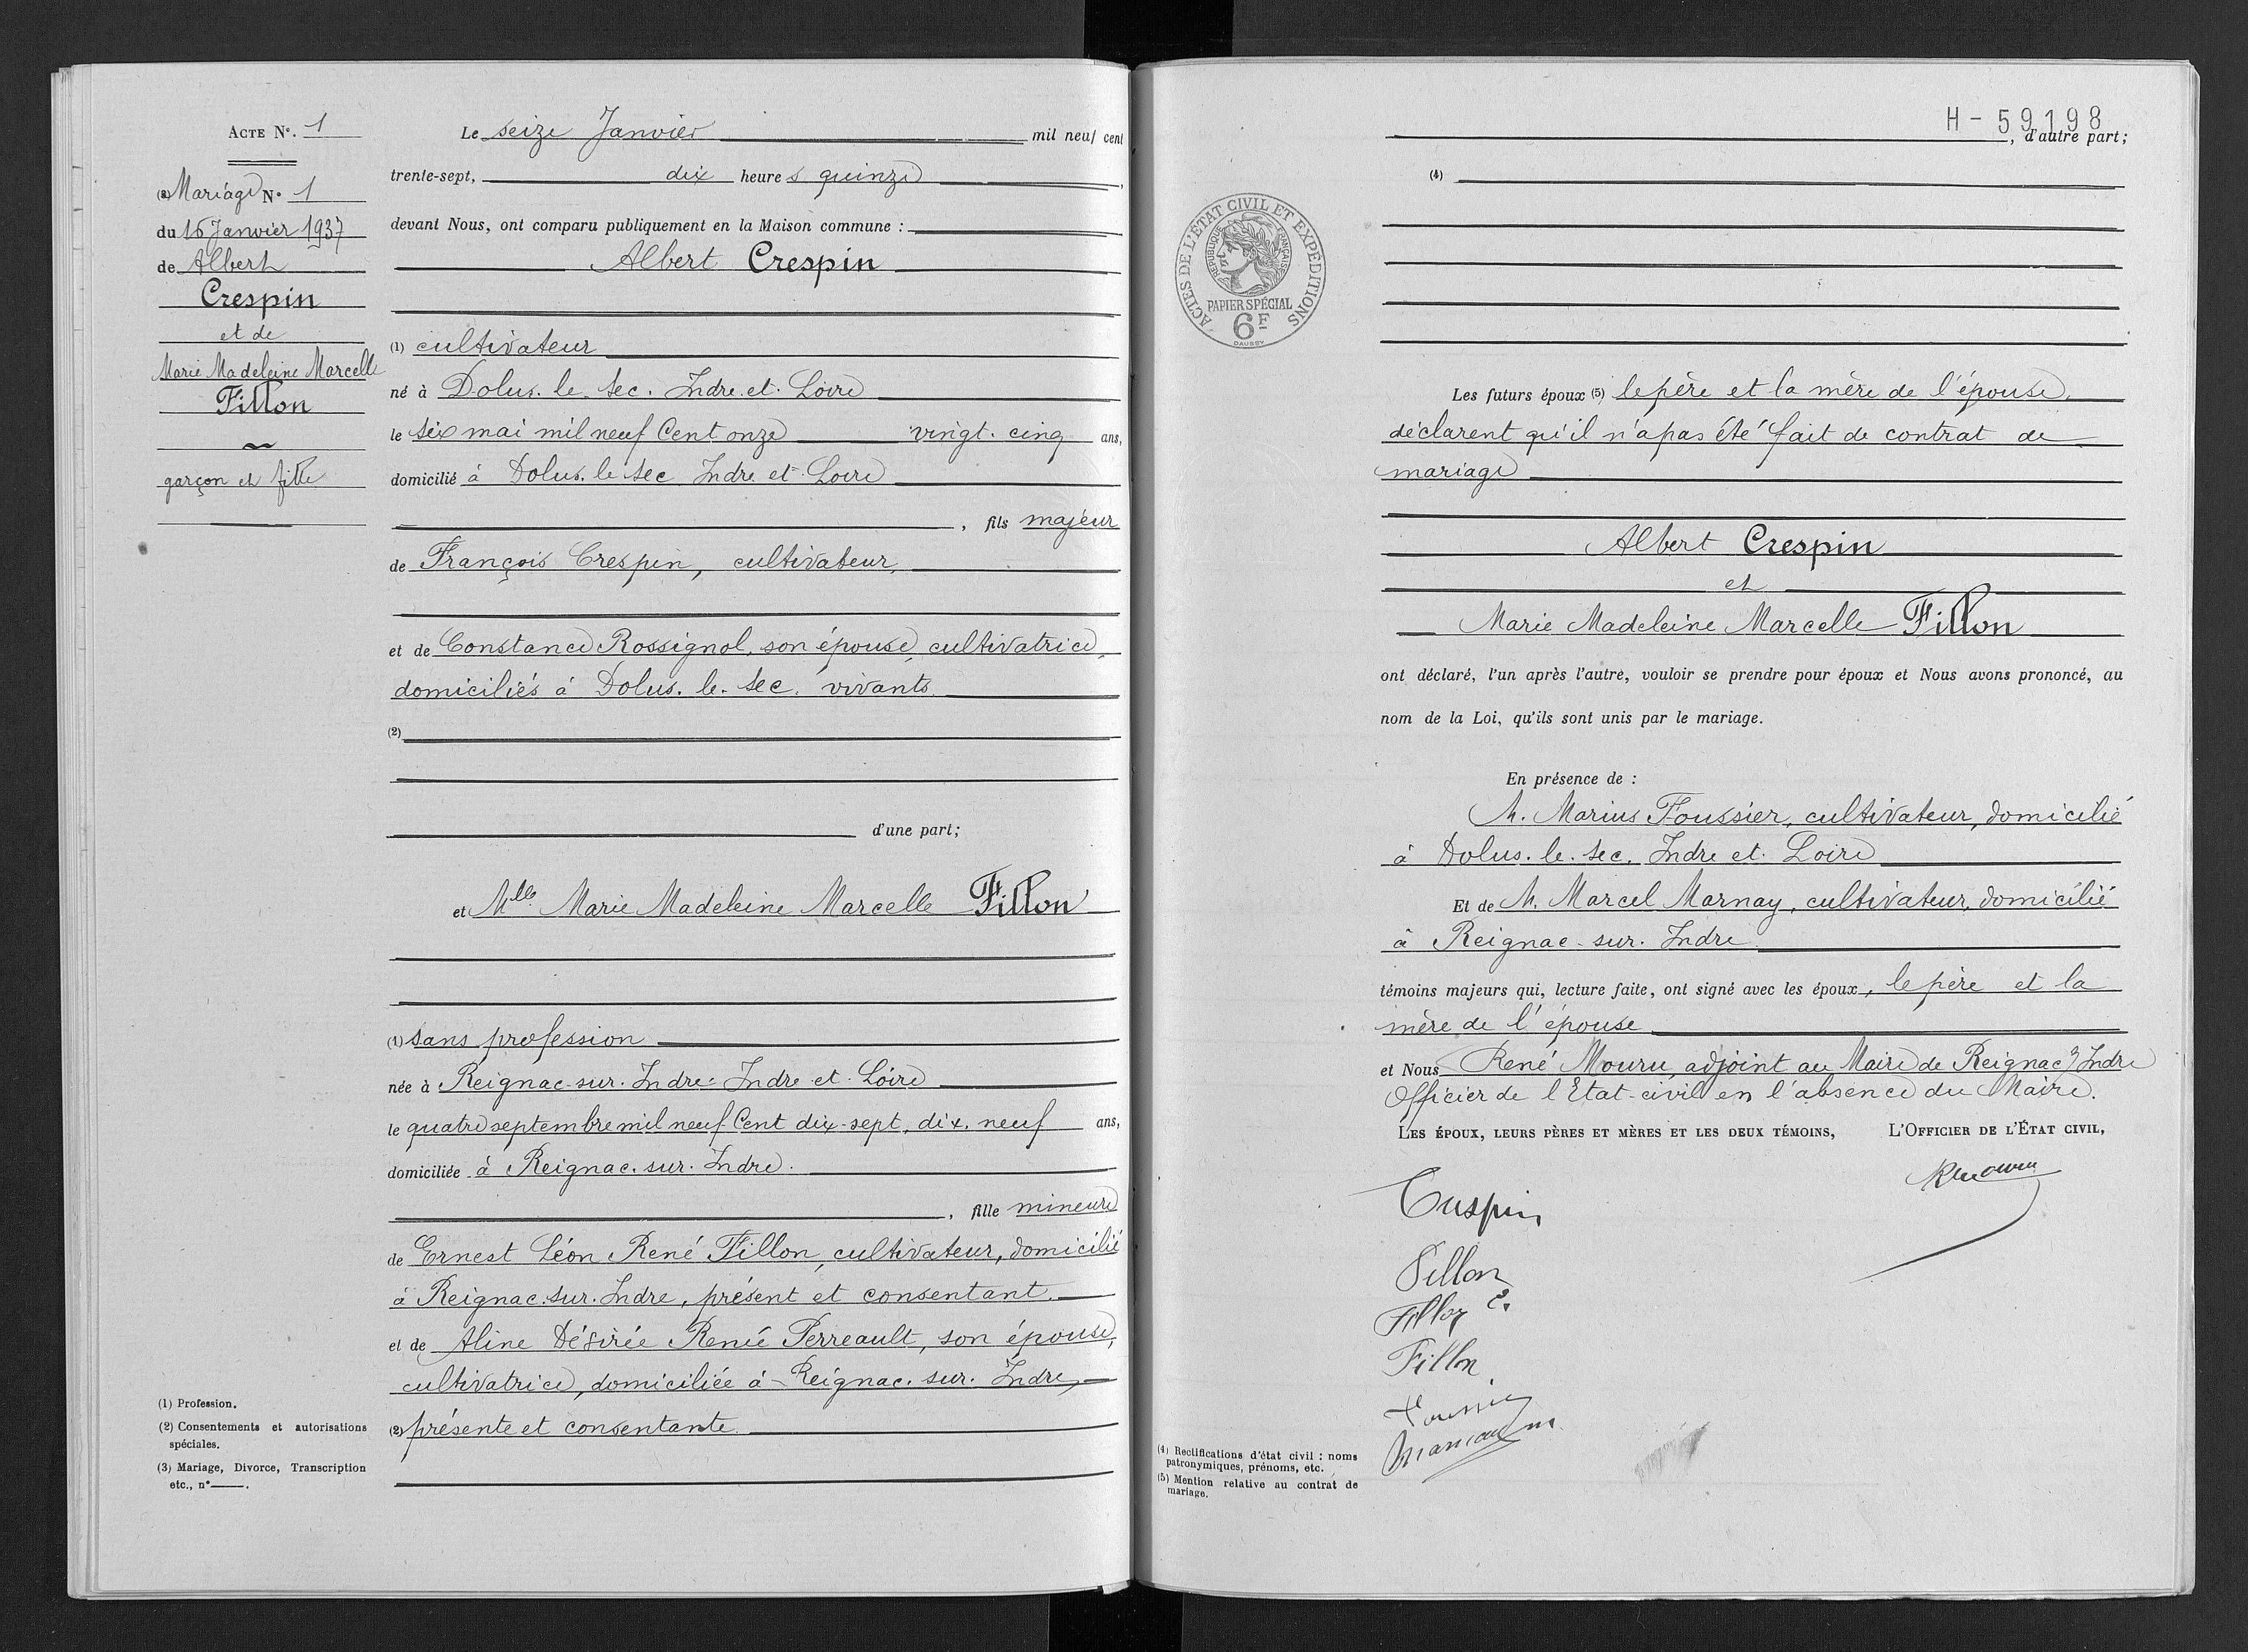 ACTE N°. 1
(3) Mariage N° 1
du 16 Janvier 1937
de Albert
Crespin
et de
Marie Madeleine Marcelle
Fillon
garçon et fille
(1) Profession.
(2) Consentements et autorisations
spéciales.
(3) Mariage, Divorce, Transcription
etc., n° .
Le seize Janvier mil neuf cent
trente-sept, dix heures quinze,
devant Nous, ont comparu publiquement en la Maison commune :
Albert Crespin
(1) cultivateur
né à Dolus. le. Sec. Indre. et. Loire
le six mai mil neuf Cent onze vingt. cinq ans,
domicilié à Dolus. le Sec Indre et Loire
, fils majeur
de François Crespin, cultivateur,
et de Constance Rossignol, son épouse, cultivatrice,
domiciliés à Dolus. le. Sec. vivants
(2)
d'une part;
et Mlle Marie Madeleine Marcelle Fillon
(1) sans profession
née à Reignac-sur. Indre. Indre et. Loire
le quatre septembre mil neuf Cent dix-sept, dix. neuf ans,
domiciliée à Reignac. sur. Indre.
, fille mineure
de Ernest Léon René Fillon, cultivateur, domicilié
à Reignac. sur. Indre, présent et consentant.
et de Aline Désirée Renée Perreault, son épouse,
cultivatrice, domiciliée à Reignac. sur. Indre,
(2) présente et consentante.
H - 59198
, d'autre part;
(4)
ACTES DE L'ÉTAT CIVIL ET EXPEDITIONS
REPUBLIQUE FRANÇAISE
PAPIER SPÉCIAL
6F
DAUSSY
Les futurs époux (5) le père et la mère de l'épouse,
déclarent qu'il n'a pas été fait de contrat de
mariage
Albert Crespin
et
Marie Madeleine Marcelle Fillon
ont déclaré, l'un après l'autre, vouloir se prendre pour époux et Nous avons prononcé, au
nom de la Loi, qu'ils sont unis par le mariage.
En présence de :
M. Marius Foussier, cultivateur, domicilié
à Dolus. le. Sec. Indre et. Loire
Et de M. Marcel Marnay, cultivateur, domicilié
à Reignac-sur. Indre
témoins majeurs qui, lecture faite, ont signé avec les époux, le père et la
mère de l'épouse
et Nous René Mouru, adjoint au Maire de Reignac s/ Indre
Officier de l'Etat-civil en l'absence du Maire.
LES ÉPOUX, LEURS PÈRES ET MÈRES ET LES DEUX TÉMOINS,
L'OFFICIER DE L'ÉTAT CIVIL,
RMouru
Crespin
Fillon
Fillon E.
Fillon
Foussier
(4) Rectifications d'état civil : noms
patronymiques, prénoms, etc.
(5) Mention relative au contrat de
mariage.